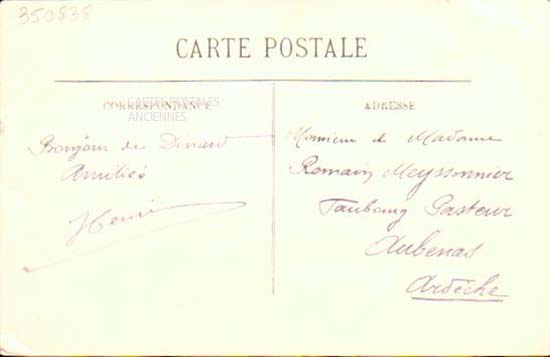 350838
CARTE POSTALE
CORRESPONDANCE
CARTES POSTALES
ANCIENNES
Bonjour de Dinard
Amitiés
Henri
ADRESSE
Monsieur & Madame
Romain Meyssonnier
Faubourg Pasteur
Aubenas
Ardèche